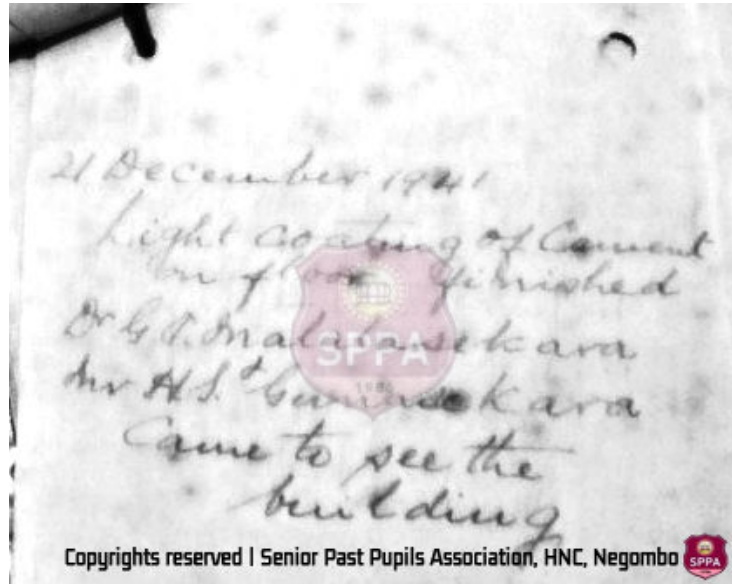 21 December 1941
Light coating of Cement
on floor finished
Dr G. P. Malalasekara
Mr H. S. Gunasekara
Came to see the
building
SPPA
Copyrights reserved | Senior Past Pupils Association, HNC, Negombo
SPPA